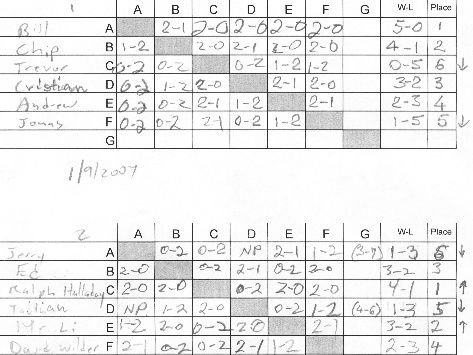 1 A B C D E F G W-L Place
Bill A 2-1 2-0 2-0 2-0 2-0 5-0 1
Chip B 1-2 2-0 2-1 2-0 2-0 4-1 2
Trevor C 0-2 0-2 0-2 1-2 1-2 0-5 6 ↓
Cristian D 0-2 1-2 2-0 2-1 2-0 3-2 3
Andrew E 0-2 0-2 2-1 1-2 2-1 2-3 4
Jonas F 0-2 0-2 2-1 0-2 1-2 1-5 5 ↓
G
1/9/2007
2 A B C D E F G W-L Place
Jerry A 0-2 0-2 NP 2-1 1-2 1-3 6 ↓
Ed B 2-0 0-2 2-1 0-2 2-0 3-2 3
Ralph Halladay C 2-0 2-0 0-2 2-0 2-0 4-1 1 ↑
D NP 1-2 2-0 0-2 1-2 (4-6) 1-3 5 ↓
Mr. Li E 1-2 2-0 0-2 2-0 2-1 3-2 2 ↑
David Wilder F 2-1 0-2 0-2 2-1 1-2 2-3 4